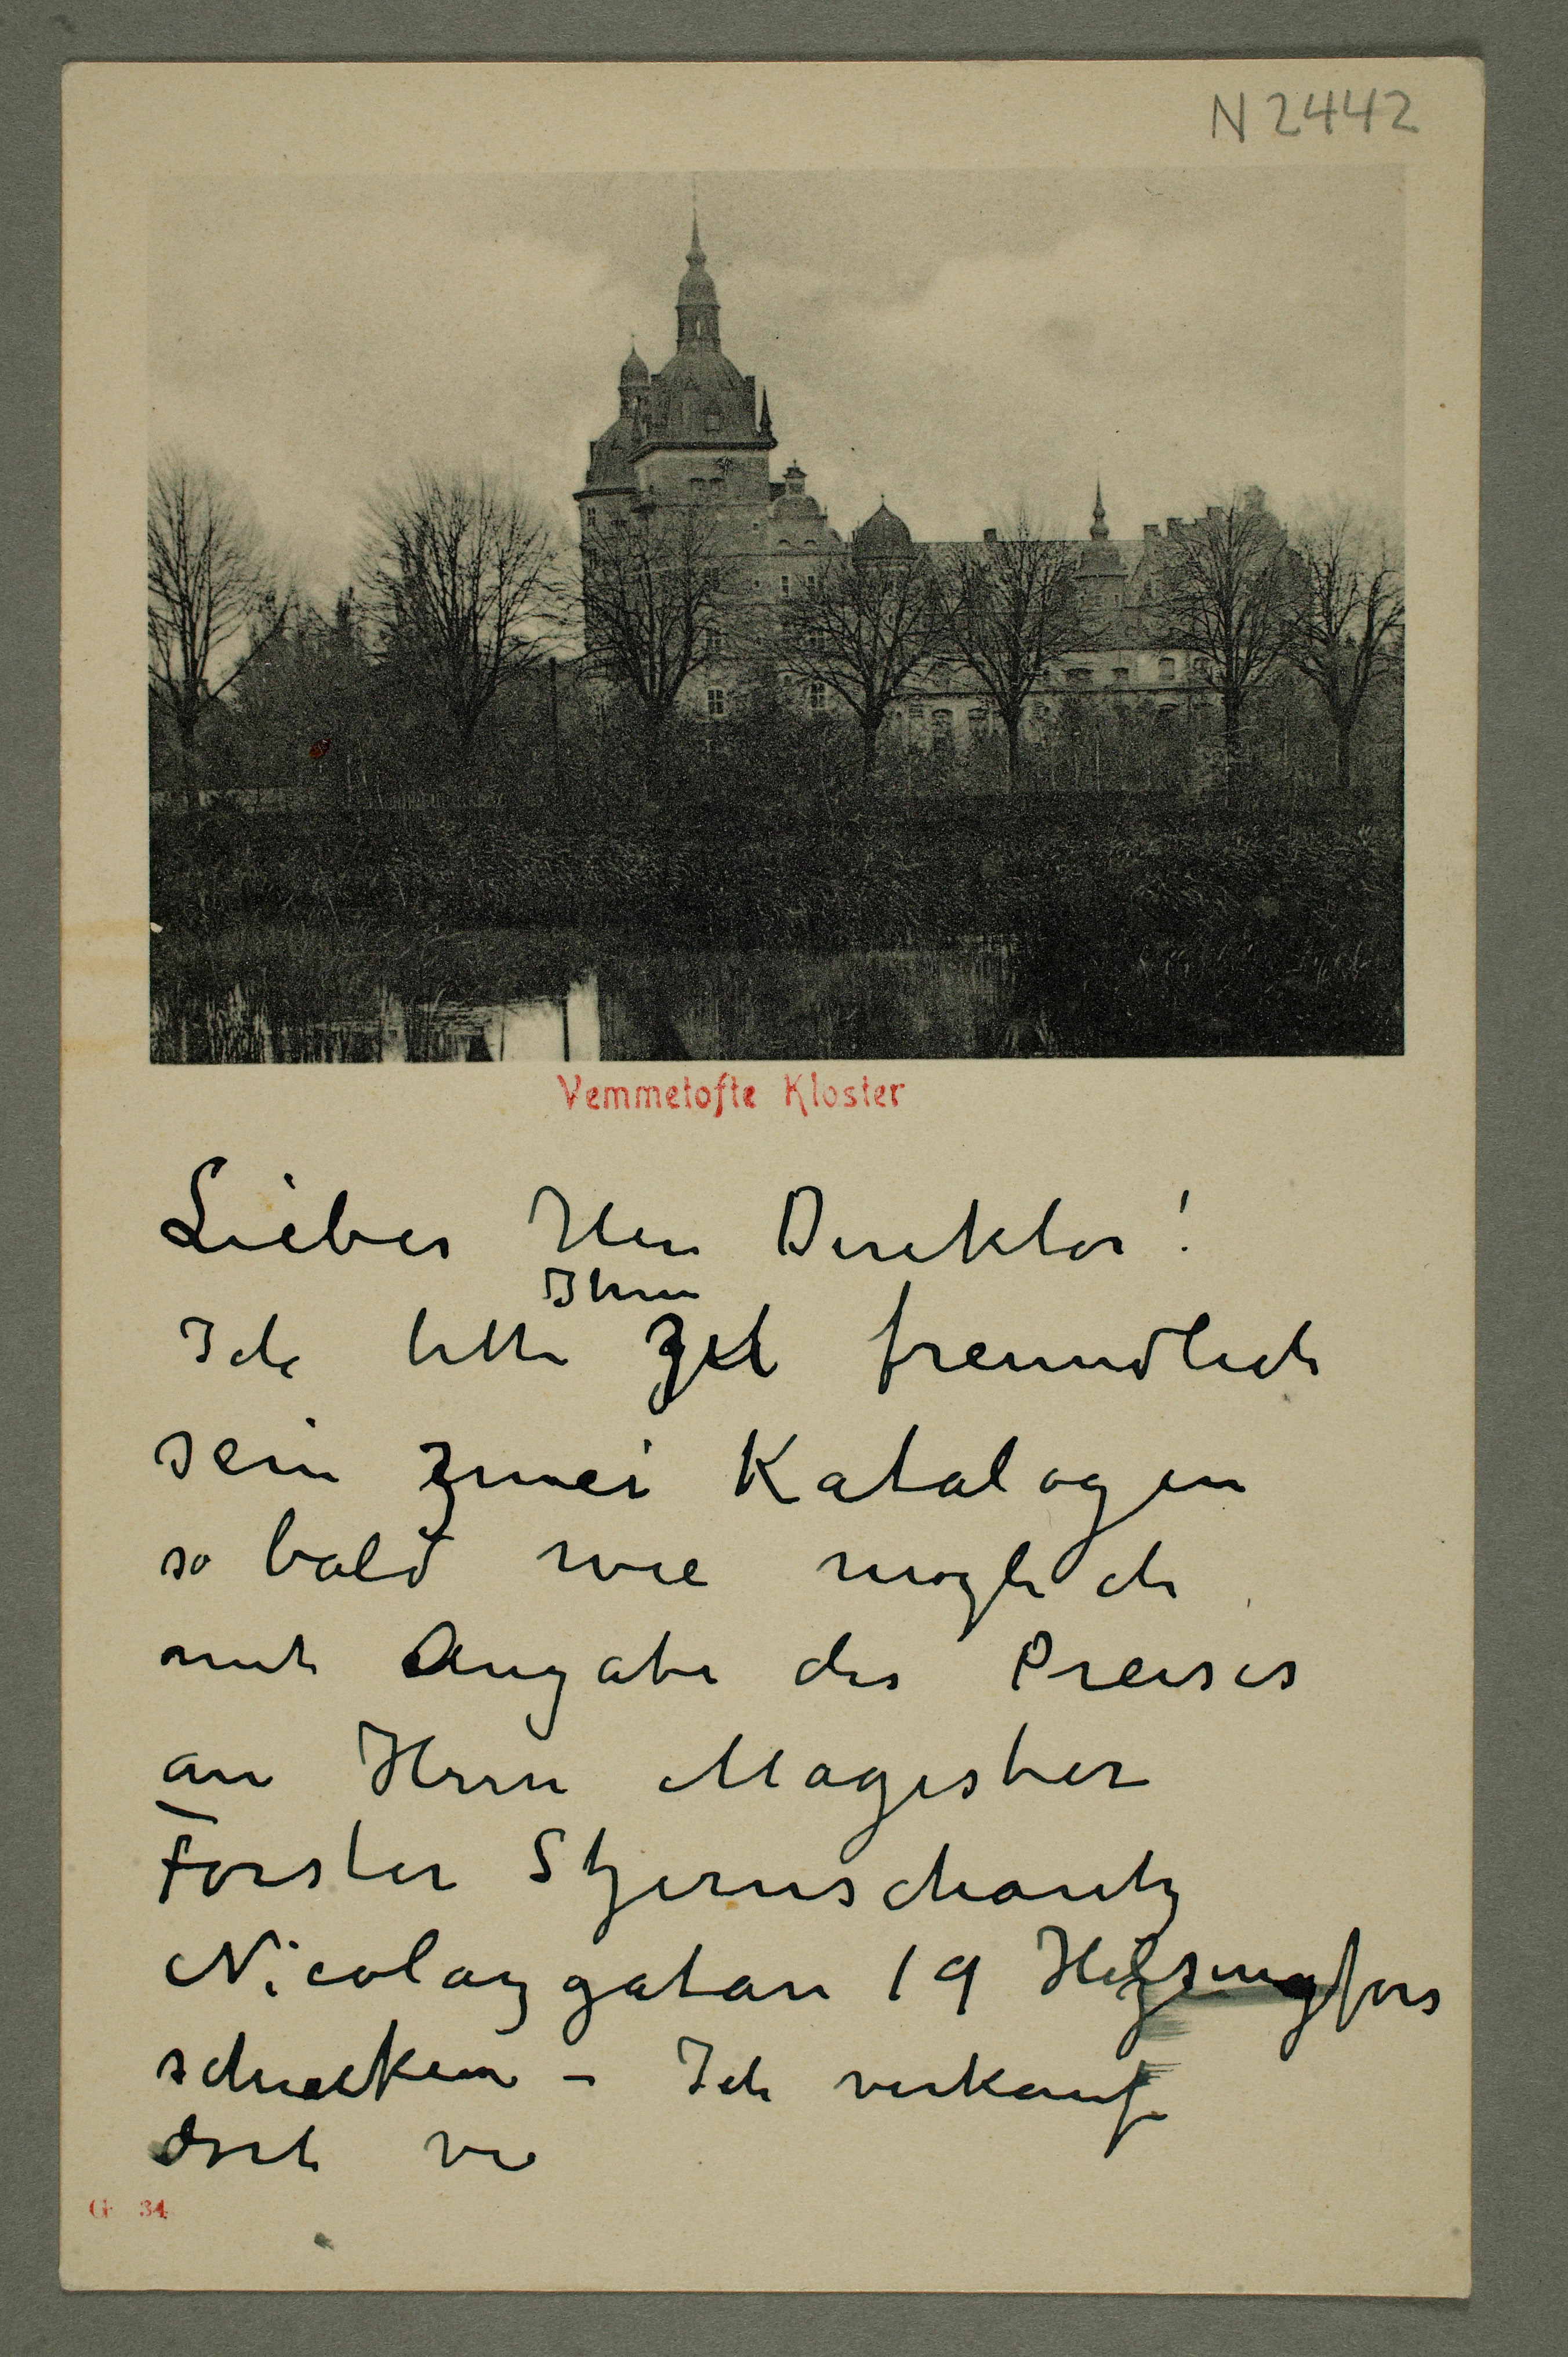 N 2442
Vemmetofte Kloster
Lieber Herr Direktor!
Ihnen
Ich bitte zu freundlich
sein zwei Katalogen
so bald wie möglich
mit Angabe des Preises
an Herrn Magister
Förster Stjernschantz
Nicolaygatan 19 Helsingfors
schicken – Ich verkauf
dort
G 34